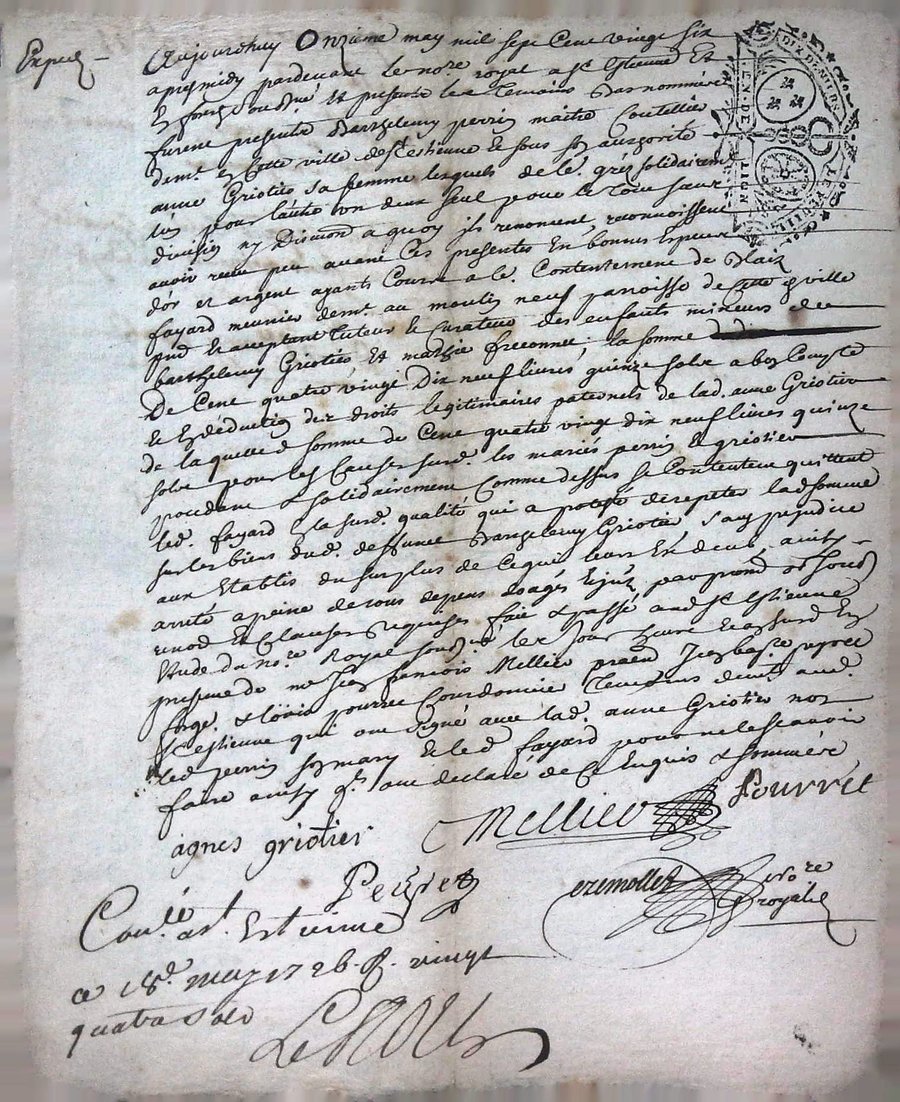 Expedié
Aujourdhuy Onzieme may mil sept Cent vingt six
apresmidy pardevant le no.re royal a St Estienne Et
En forest soubsné et presents les Temoins bas nommés
furent presents Barthelemy perrin maitre Coutellier
dem.t En Cette ville de St estienne Et sous son authorité
anne Griotier sa femme lesquels de le. gré solidairem.t
lun pour lautre un deux seul pour le Tout sans
division ny Discution a quoy ils renoncent, reconnoissent
avoir receu peu avant Ces presentes En bonnes Especes
dor et argent ayants Cours a le. Contentement de Blaize
fayard meunier dem.t au moulin neuf parroisse de Cette ville
pnt Et acceptant Tuteur Et Curateur des enfants mineurs de
barthelemy Griotier Et de la somme
De Cent quatre vingt Dix neuf livres quinze solz a bon Compte
Et En deduction des droits legitimaires paternels de lad. anne Griotier
de laquelle somme de Cent quatre vingt dix neuf livres quinze
solz pour les Causes susd. les mariés perrin Et griotier
procedant solidairement Comme dessus se Contentent quittent
led. fayard En la susd. qualité qui a protesté de repeter lad somme
sur les biens dud. deffunt Barthelemy Griotier sans prejudice
aux Etablis du surplus de Ce qui leurs Est deub, ainsy
arreté a peine de tous depens
renon Et Clauses requises fait & passé aud St Estienne
Etude du no.re Royal soubsné les Jour heure Et an susd En
presence de m.e Jean françois Mellier praticien
forge. & Louis pourret Cordonnier Temoins dem.t aud.
St Estienne qui ont signé avec lad. anne Griotier non
led perrin son mary Et led fayard pour ne le scavoir
faire ainsy qils ont declaré de Ce Enquis & sommés
agnes griotier
Mellier
Pourret
Peyret
no.re
royal
Con.lé a St Estienne
ce 18.e may 1726. R. vingt
quatre solz
DIX DENIERS
LA FEUILLE
GEN. DE
LION